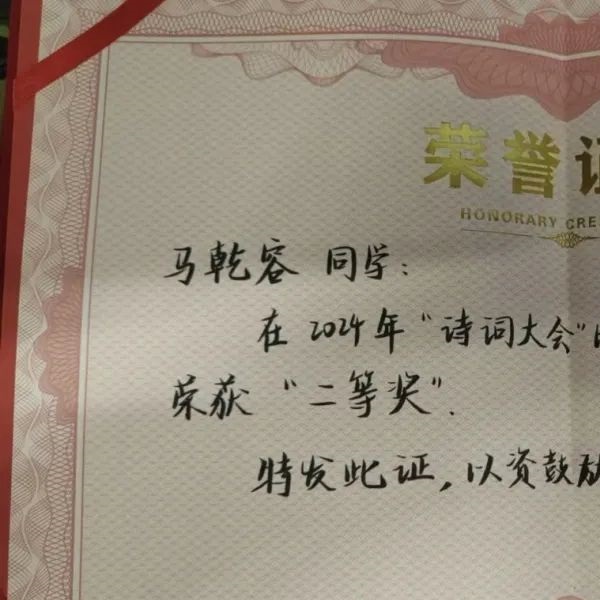 荣誉证
HONORARY CRE
马乾容 同学：
在2024年“诗词大会”
荣获“二等奖”.
特发此证，以资鼓励